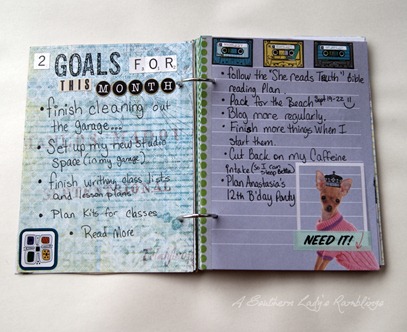 2 GOALS FOR
THIS MONTH
• finish cleaning out
the garage...
• Set up my new Studio
Space (in my garage)
• finish writing class lists
and lesson plans
• Plan Kits for classes
• Read More
• follow the "She reads Truth" Bible
reading Plan
• Pack for the Beach Sept 19-22 !!
• Blog more regularly,
• Finish more things when I
start them.
• Cut Back on my Caffeine
intake (so I can
Sleep Better)
• Plan Anastasia's
12th B'day Party
NEED IT!
A Southern Lady's Ramblings